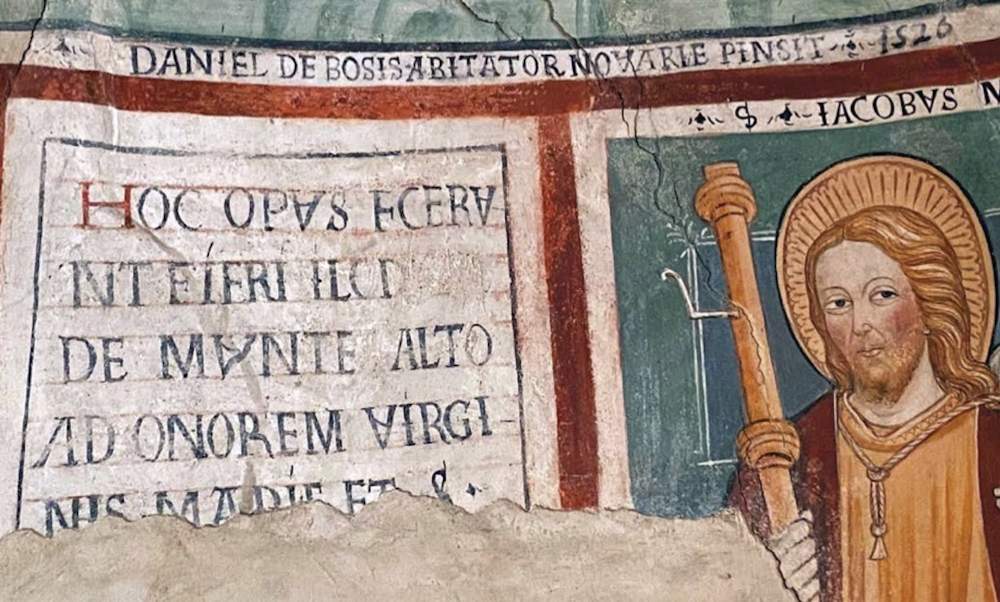 DANIEL DE BOSIS ABITATOR NOVARIE PINSIT 1526
S IACOBVS M
HOC OPVS FCERV
INT EIFRI
DE MVNTE ALTO
AD ONOREM VIRGI
NIS MARIE ET S